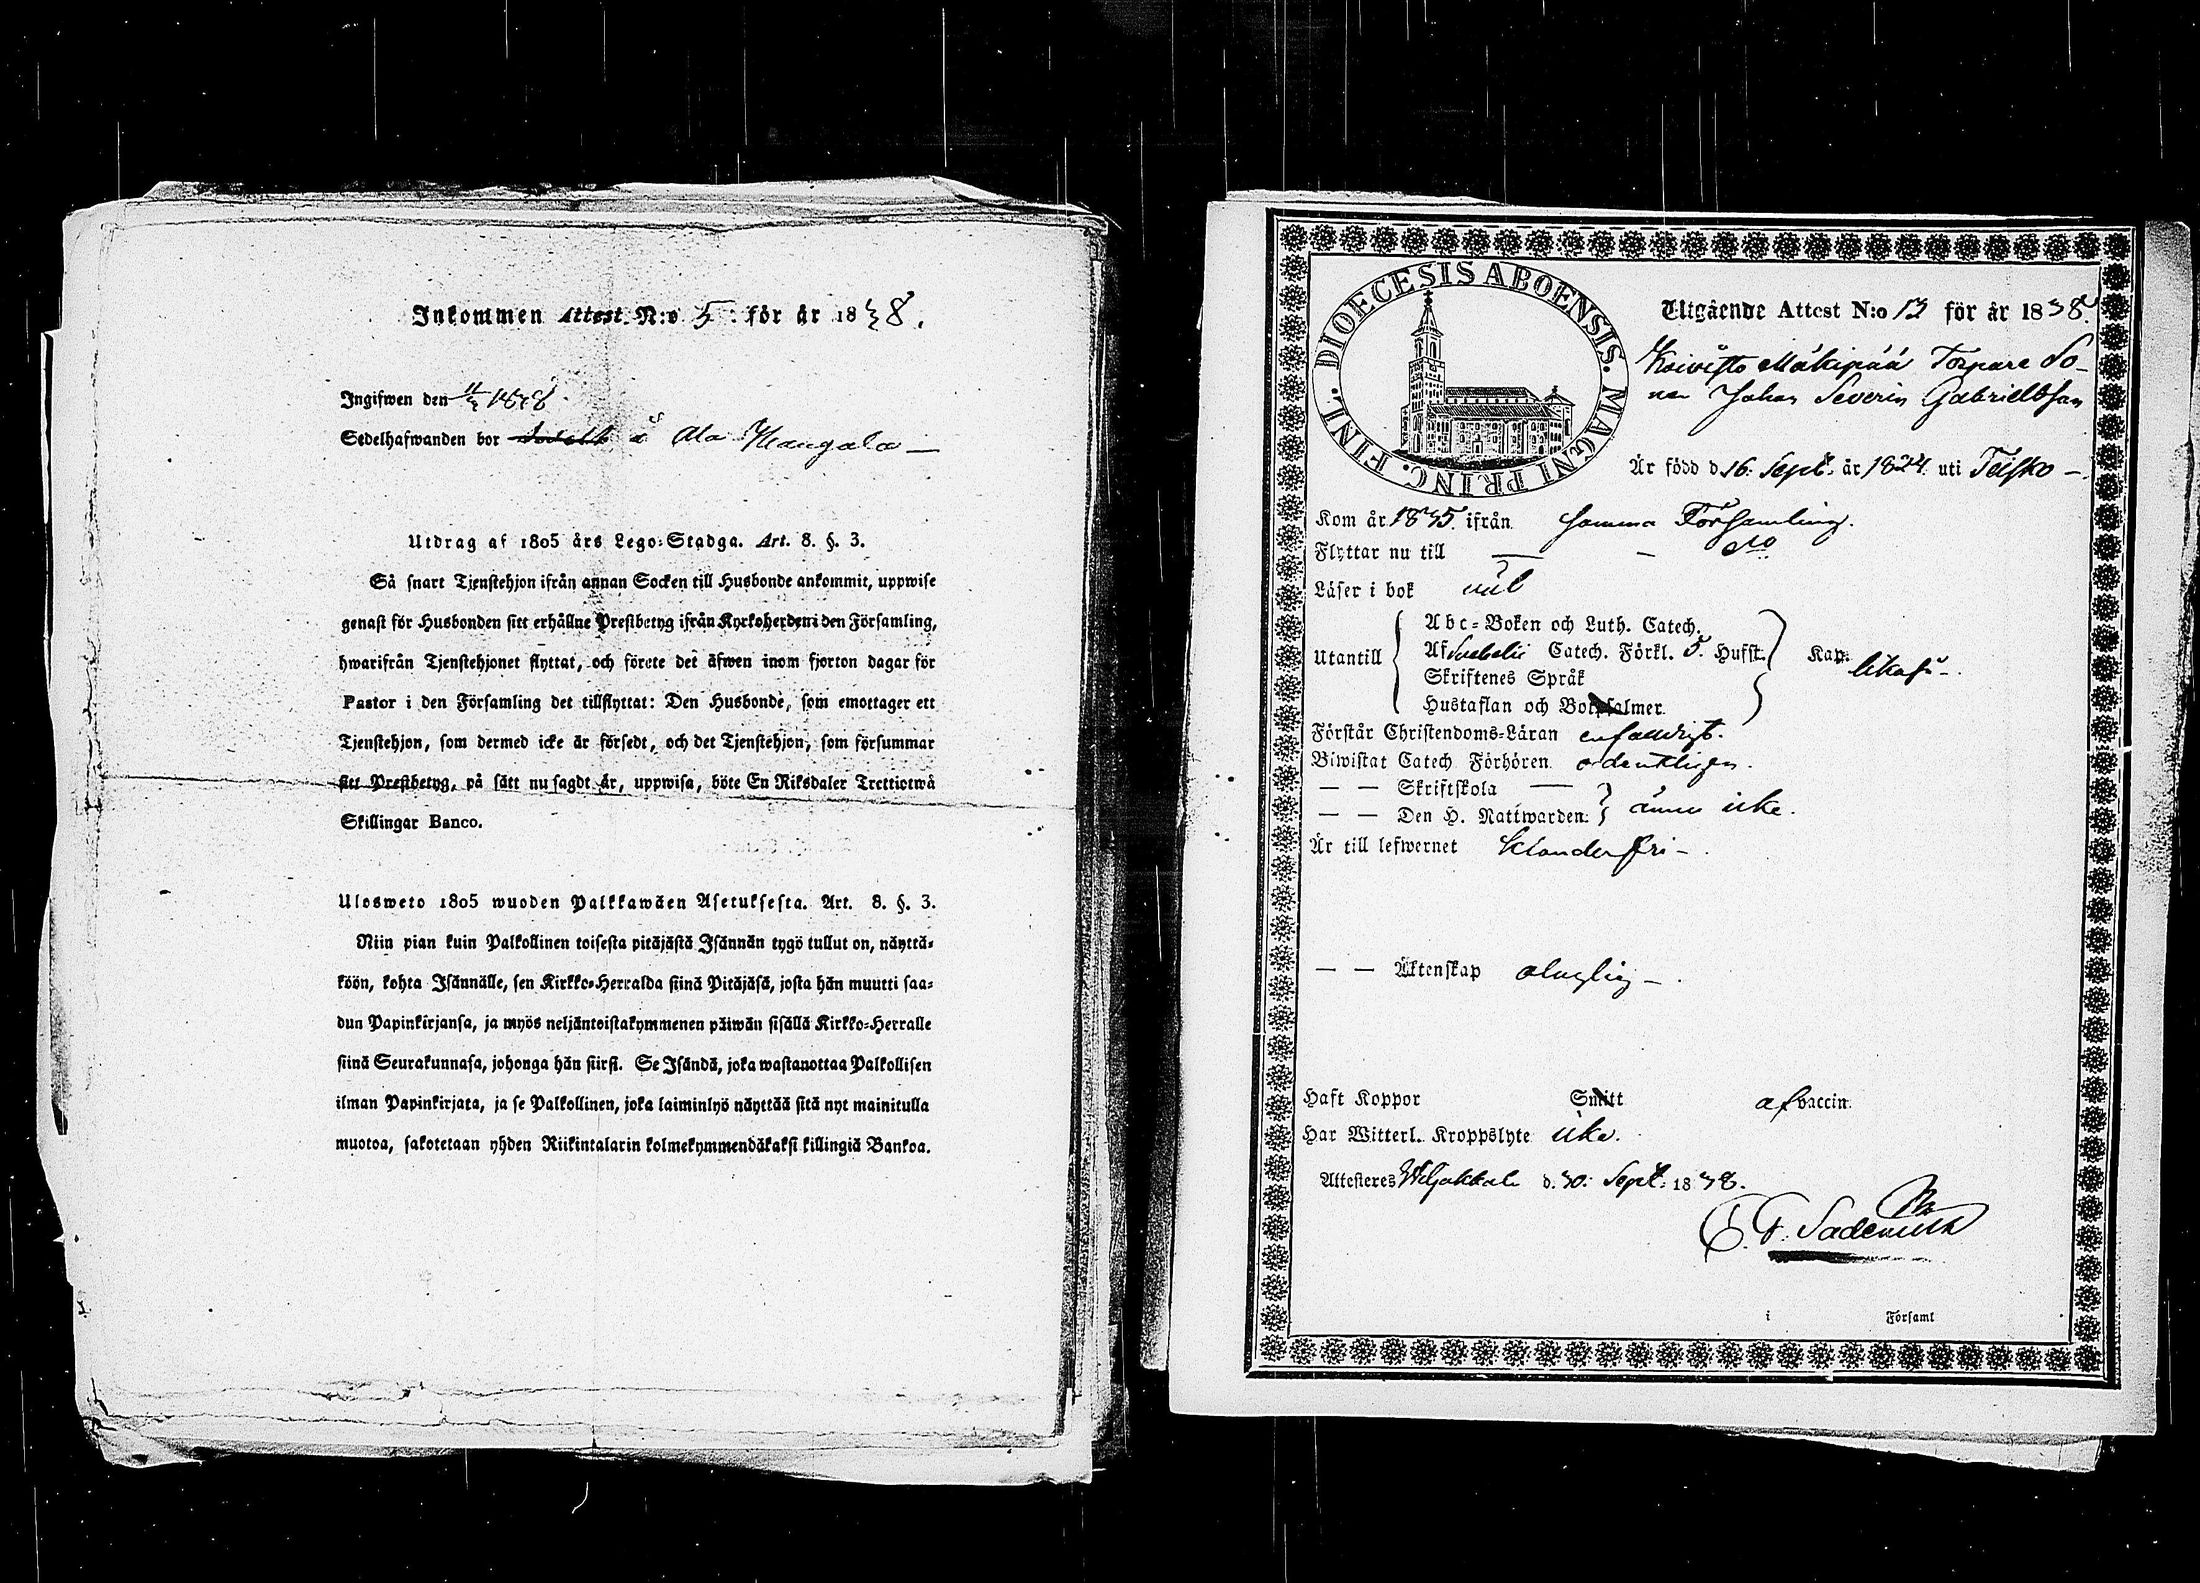 Inkommen Attest N:o 5 för år 1838.
Ingifwen den 1838.
Sedelhafwanden bor å Ala Kaugala
Utdrag af 1805 års Lego-Stadga. Art. 8. §. 3.
Så snart Tjenstehjon ifrån annan Socken till Husbonde ankommit, uppwise
genast för Husbonden sitt erhållne Prestbetyg ifrån Kyrkoherden i den Församling,
hwarifrån Tjenstehjonet flyttat, och förete det äfwen inom fjorton dagar för
Pastor i den Församling det tillflyttat: Den Husbonde, som emottager ett
Tjenstehjon, som dermed icke är försedt, och det Tjenstehjon, som försummar
sitt Prestbetyg, på sätt nu sagdt är, uppwisa, böte En Riksdaler Trettiotwå
Skillingar Banco.
Ulosweto 1805 wuoden Palkkawäen Asetuksesta. Art. 8. §. 3.
Niin pian kuin Palkollinen toisesta pitäjästä Isännän tygö tullut on, näyttä-
köön, kohta Isännälle, sen Kirkko-Herralda siinä Pitäjäsä, josta hän muutti saa-
dun Papinkirjansa, ja myös neljäntoistakymmenen päiwän sisällä Kirkko-Herralle
siinä Seurakunnasa, johonga hän siirsi. Se Isändä, joka wastanottaa Palkollisen
ilman Papinkirjata, ja se Palkollinen, joka laiminlyö näyttää sitä nyt mainitulla
muotoa, sakotetaan yhden Riikintalarin kolmekymmendäkaksi killingiä Bankoa.
DIOECESIS ABOENSIS. MAGNI PRINC. FINL.
Utgående Attest N:o 13 för år 1838.
Koivisto Mäkipää Torpare So-
nen Johan Severin Gabrielsson
Är född d. 16. Sept. år 1824. uti Teisko
Kom år 1835. ifrån samma Församling.
Flyttar nu till — — do
Läser i bok väl
Utantill Abc-Boken och Luth. Catech.
Af Svebelii Catech. Förkl. 5. Hufst. Kap. likaså
Skriftenes Språk
Hustaflan och Botpsalmer.
Förstår Christendoms-Läran enfaldigt.
Biwistat Catech. Förhören ordentligen.
— — Skriftskola
— — Den H. Nattwarden ännu icke.
Är till lefwernet klanderfri
— — Äktenskap oduglig
Haft Koppor Smitt af vaccin.
Har Witterl. Kroppslyte icke.
Attesteres Wiljakkala d. 30. Sept. 1838.
i Församl